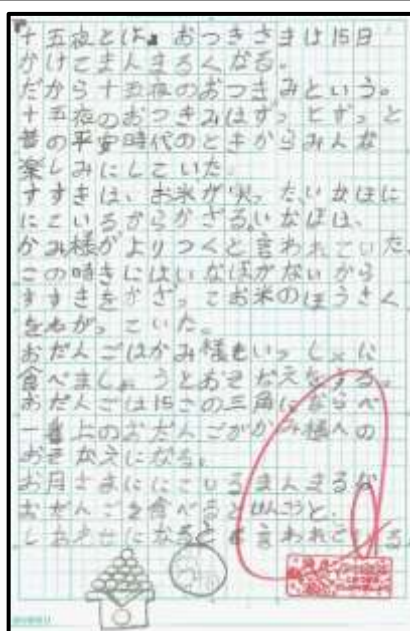 十五夜とは、おつきさまは15日
かけてまんまるくなる。
だから十五夜のおつきみという。
十五夜のおつきみはずっとずっと
昔の平安時代のときからみんな
楽しみにしていた。
すすきは、お米が いなほに
にているからかざる。いなほは、
かみ様がよりつくと言われていた。
この時きにはいなほがないから
すすきをかざってお米のほうさく
をねがっていた。
おだんごはかみ様もいっしょに
食べましょうとおそなえをする。
おだんごは15この三角にならべ
一番上のおだんごがかみ様への
おそなえになる。
お月さまににているまんまるな
おだんごを食べるとけんこうと、
しあわせになるとも言われている。